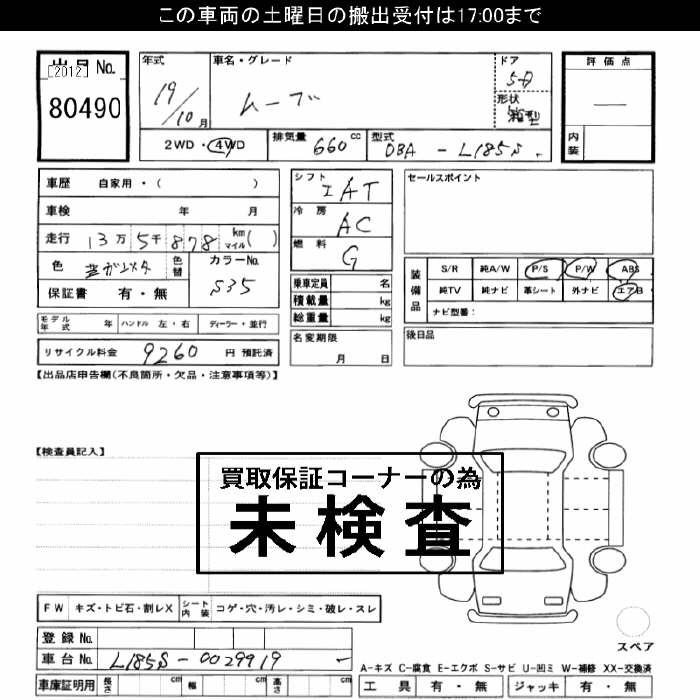 この車両の土曜日の搬出受付は17:00まで
出品No.
[2012]
80490
年式
19/10月
車名・グレード
ムーブ
ドア
5D
形状
箱型
評価点
内装
2WD・4WD
排気量 660 cc
型式 DBA - L185S
車歴 自家用・( )
車検 年 月
走行 13万5千878 km マイル( )
色
色替
カラーNo.
S35
保証書 有・無
シフト IAT
冷房 AC
燃料 G
乗車定員 名
積載量 kg
総重量 kg
名変期限
月 日
セールスポイント
装備品
S/R 純A/W P/S P/W ABS
純TV 純ナビ 革シート 外ナビ エアB
ナビ型番:
後日品
モデル年式 年 ハンドル 左・右 ディーラー・並行
リサイクル料金 9260 円 預託済
【出品店申告欄(不良箇所・欠品・注意事項等)】
【検査員記入】
買取保証コーナーの為
未検査
FW キズ・トビ石・割レX シート内装 コゲ・穴・汚レ・シミ・破レ・スレ
登録No.
車台No. L185S-0029919
スペア
A-キズ C-腐食 E-エクボ S-サビ U-凹ミ W-補修 XX-交換済
車庫証明用 長さ cm 幅 cm 高さ cm
工具 有・無 ジャッキ 有・無